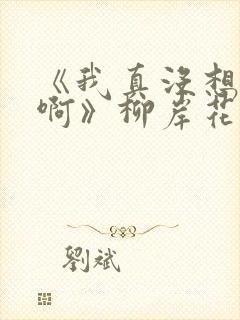 《我真没想
啊》柳岸花
劉斌